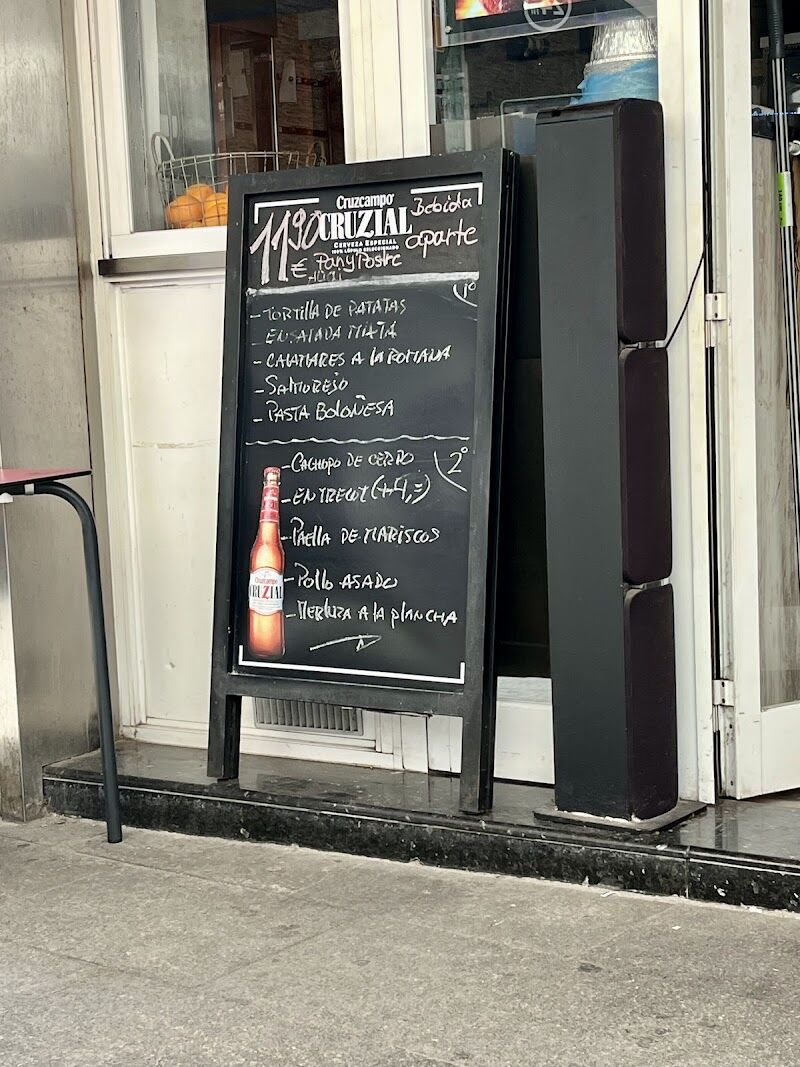 Cruzcampo
CRUZIAL
CERVEZA ESPECIAL
100% LÚPULO SELECCIONADO
11'90 €
Bebida
aparte
Pan y Postre
1º
- TORTILLA DE PATATAS
- ENSALADA MIXTA
- CALAMARES A LA ROMANA
- SAMOREJO
- PASTA BOLOÑESA
2º
- CACHOPO DE CERDO
- ENTRECOT (+4,=)
- PAELLA DE MARISCOS
- POLLO ASADO
- MERLUZA A LA PLANCHA
Cruzcampo
CRUZIAL